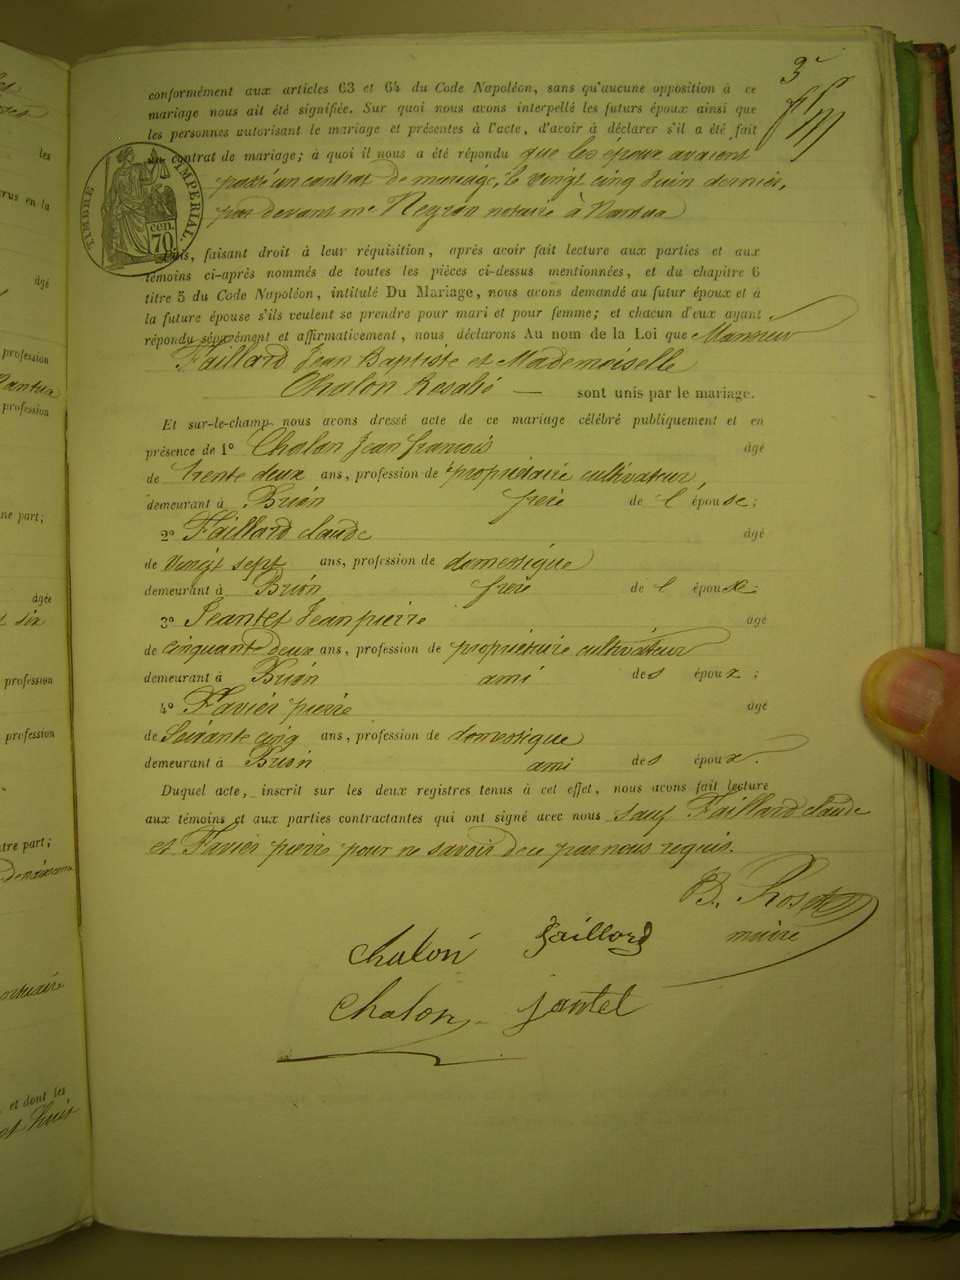 3e
conformément aux articles 63 et 64 du Code Napoléon, sans qu'aucune opposition à ce
mariage nous ait été signifiée. Sur quoi nous avons interpellé les futurs époux ainsi que
les personnes autorisant le mariage et présentes à l'acte, d'avoir à déclarer s'il a été fait
un contrat de mariage; à quoi il nous a été répondu que les époux avaient
passé un contrat de mariage, le vingt cinq Juin dernier,
par devant me notaire à Nantua
TIMBRE IMPÉRIAL.
70 cen.
Puis, faisant droit à leur réquisition, après avoir fait lecture aux parties et aux
témoins ci-après nommés de toutes les pièces ci-dessus mentionnées, et du chapitre 6
titre 5 du Code Napoléon, intitulé Du Mariage, nous avons demandé au futur époux et à
la future épouse s'ils veulent se prendre pour mari et pour femme; et chacun d'eux ayant
répondu séparément et affirmativement, nous déclarons Au nom de la Loi que Monsieur
Faillard Jean Baptiste et Mademoiselle
Chalon Rosalie — sont unis par le mariage.
Et sur-le-champ nous avons dressé acte de ce mariage célébré publiquement et en
présence de 1o Chalon Jean françois âgé
de trente deux ans, profession de propriétaire cultivateur,
demeurant à Brion frère de l'épouse;
2o Faillard claude âgé
de vingt sept ans, profession de domestique
demeurant à Brion frère de l époux;
3o Jeantet Jean pierre âgé
de cinquante deux ans, profession de propriétaire cultivateur
demeurant à Brion ami des époux;
4o Favier pierre âgé
de Soixante cinq ans, profession de domestique
demeurant à Brion ami des époux.
Duquel acte, inscrit sur les deux registres tenus à cet effet, nous avons fait lecture
aux témoins et aux parties contractantes qui ont signé avec nous sauf Faillard claude
et Favier pierre pour ne savoir de ce par nous requis.
maire
chalon faillard
chalon jantet
les
âgé
profession
profession
âgée
profession
profession
et dont les